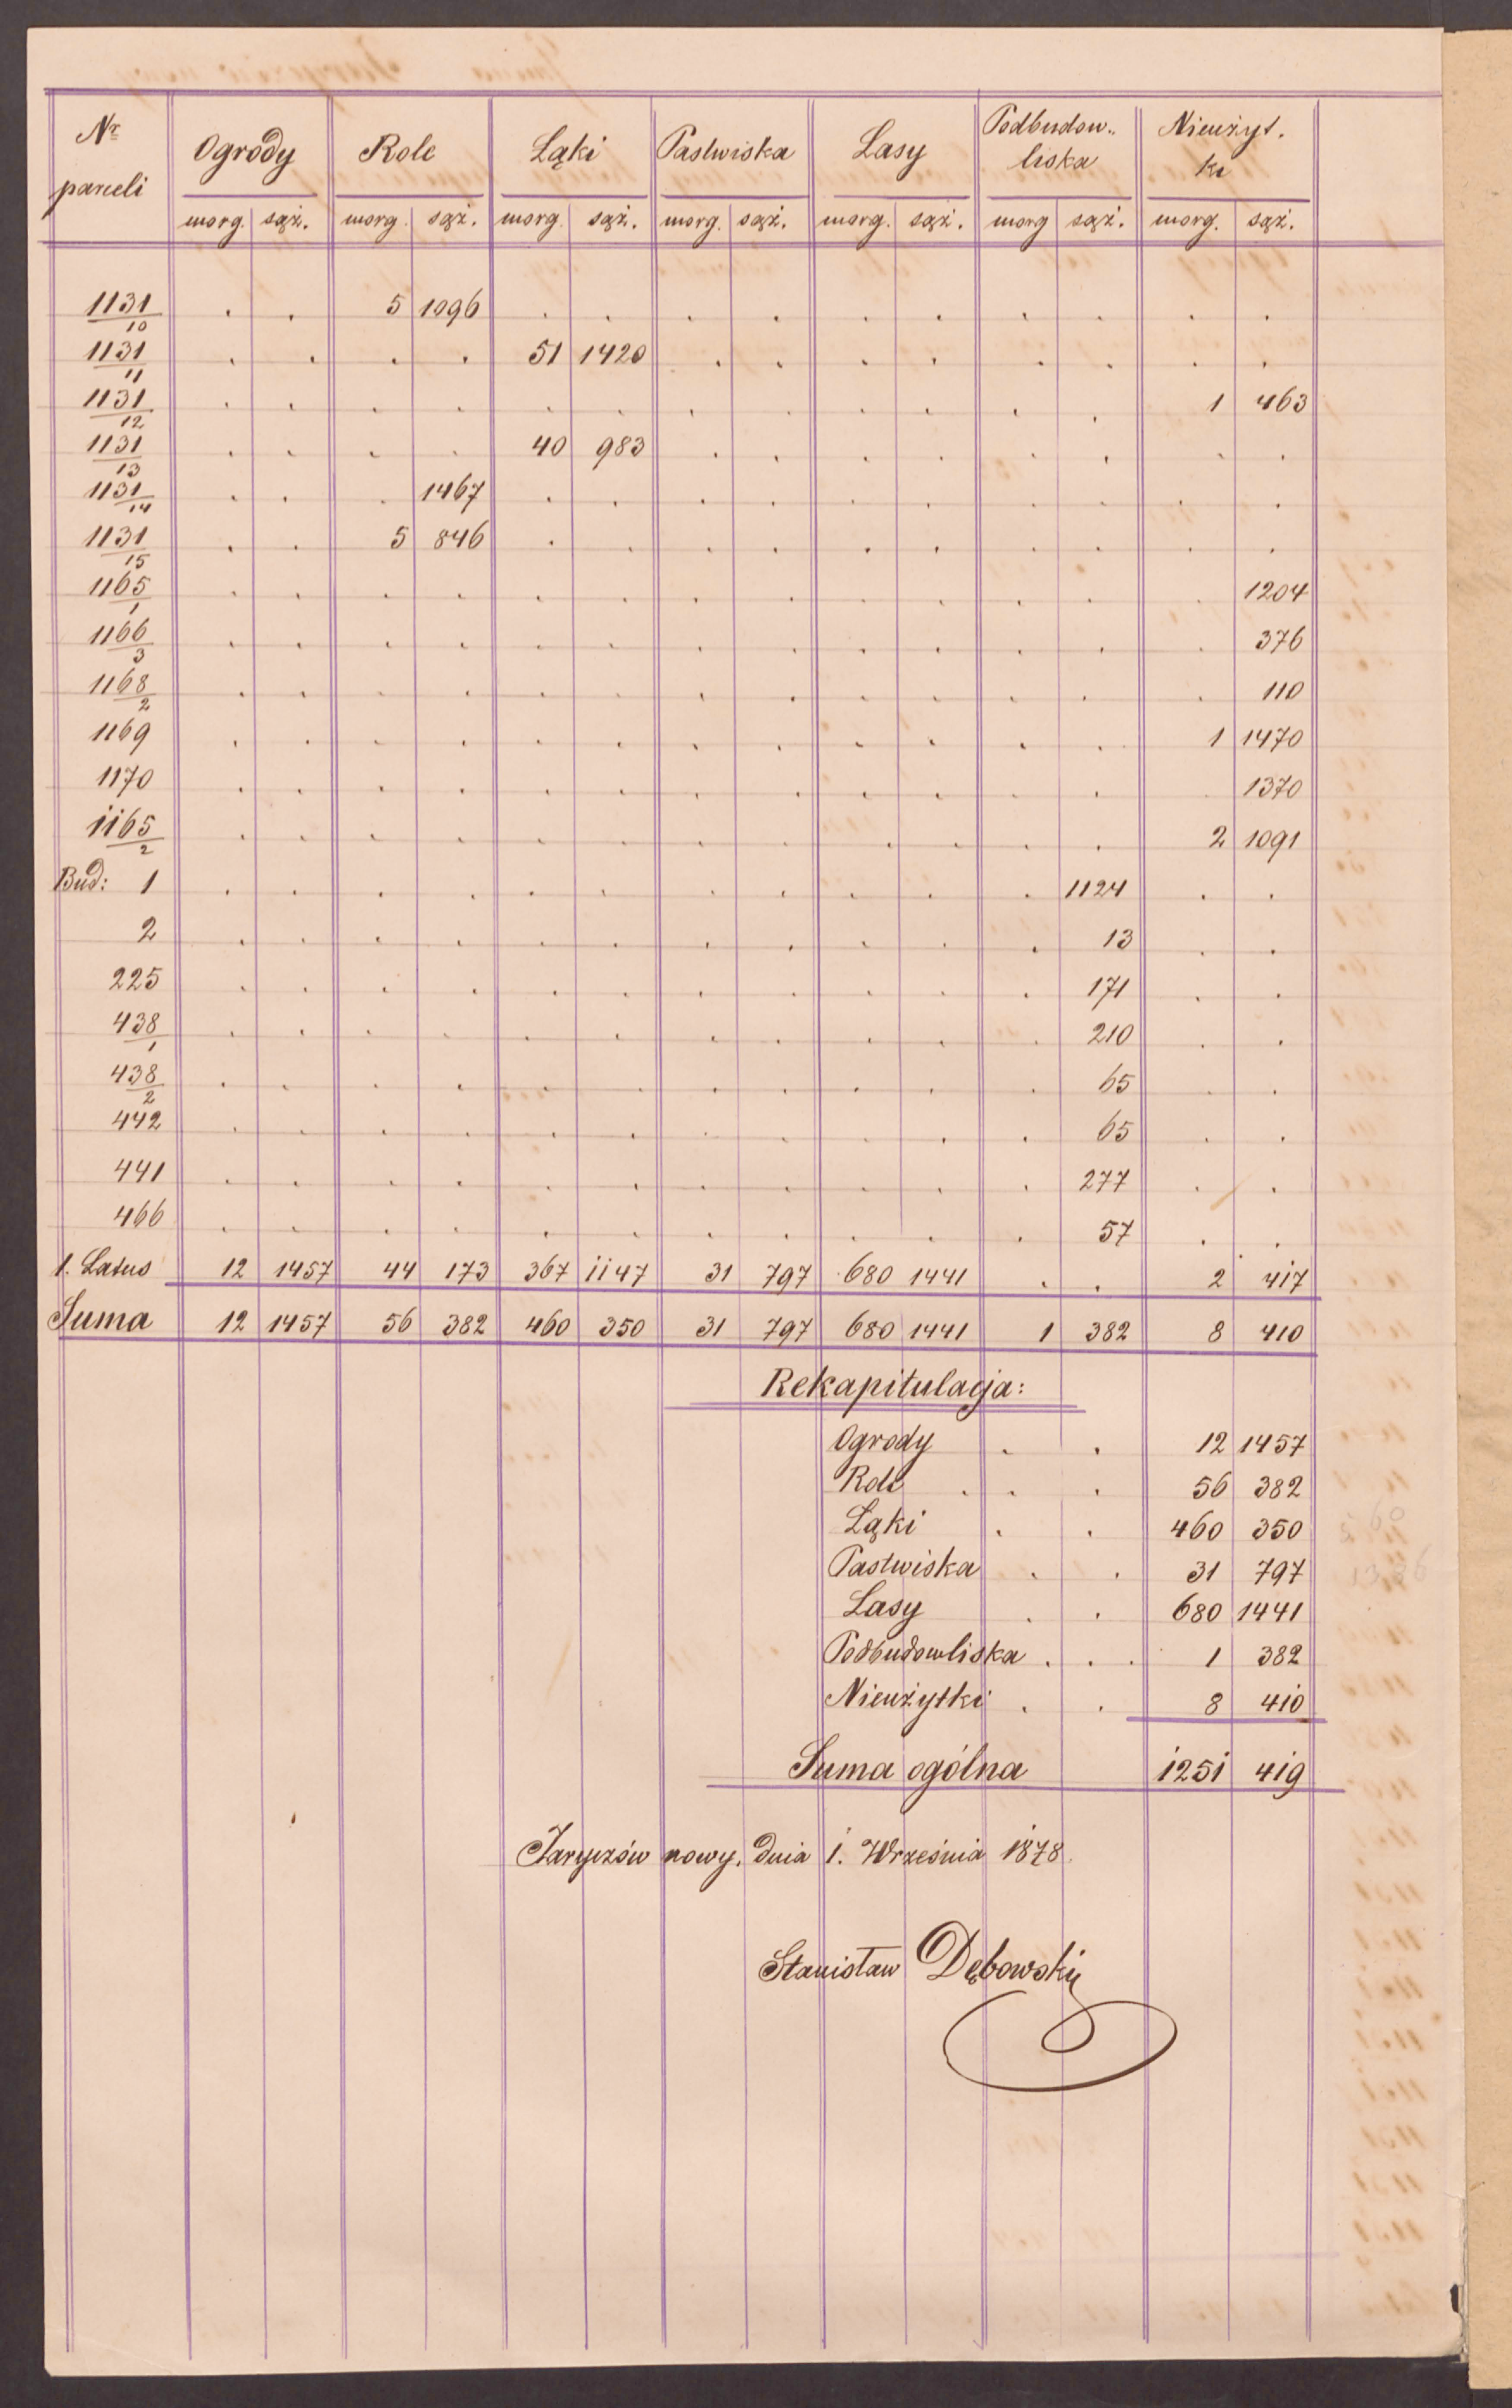 Nr parceli | Ogrody | Role | Łąki | Pastwiska | Lasy | Podbudow.. liska | Nieużyt. ki
morg. sąż. | morg. sąż. | morg. sąż. | morg. sąż. | morg. sąż. | morg sąż. | morg. sąż.
1131/10 . . 5 1096 . . . . . . . . . .
1131/11 . . . . 51 1420 . . . . . . . .
1131/12 . . . . . . . . . . . . 1 463
1131/13 . . . . 40 983 . . . . . . . .
1131/14 . . . 1467 . . . . . . . . . .
1131/15 . . 5 846 . . . . . . . . . .
1165/1 . . . . . . . . . . . . . 1204
1166/3 . . . . . . . . . . . . . 376
1168/2 . . . . . . . . . . . . . 110
1169 . . . . . . . . . . . . 1 1470
1170 . . . . . . . . . . . . . 1370
1165/2 . . . . . . . . . . . . 2 1091
Bud: 1 . . . . . . . . . . . 1124 . .
2 . . . . . . . . . . . 13 . .
225 . . . . . . . . . . . 171 . .
438/1 . . . . . . . . . . . 210 . .
438/2 . . . . . . . . . . . 65 . .
442 . . . . . . . . . . . 65 . .
441 . . . . . . . . . . . 277 . .
466 . . . . . . . . . . . 57 . .
1. Latus 12 1457 44 173 367 1147 31 797 680 1441 . . 2 417
Suma 12 1457 56 382 460 350 31 797 680 1441 1 382 8 410
Rekapitulacja:
Ogrody . . 12 1457
Role . . . 56 382
Łąki . . 460 350
Pastwiska . . 31 797
Lasy . . 680 1441
Podbudowliska . . . 1 382
Nieużytki . . 8 410
Suma ogólna 1251 419
Jaryczów nowy, dnia 1. Września 1878.
Stanisław Dębowski